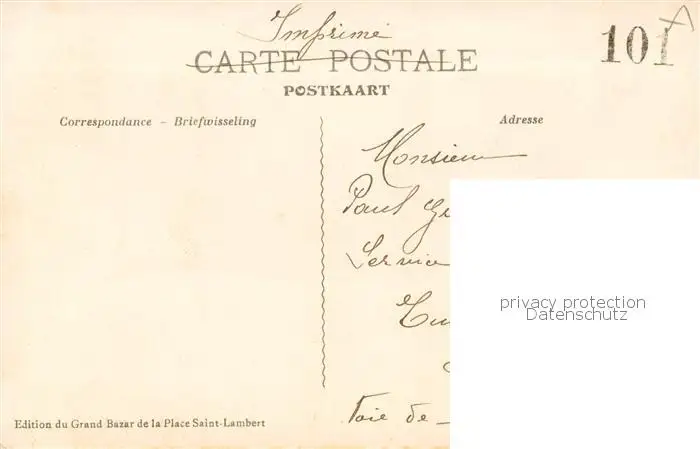 Imprimé
101
CARTE POSTALE
POSTKAART
Correspondance – Briefwisseling
Adresse
Monsieur
Paul
Service
privacy protection
Datenschutz
Voie de
Edition du Grand Bazar de la Place Saint-Lambert